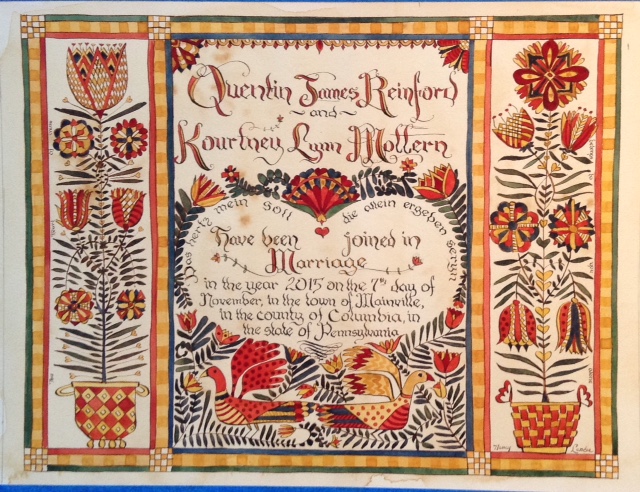 Quentin James Reinford
~ and ~
Kourtney Lynn Mottern
Das hertz mein Gott die allein ergeben
have been joined in
Marriage
in the year 2015 on the 7th day of
November, in the town of Mainville,
in the county of Columbia, in
the state of Pennsylvania